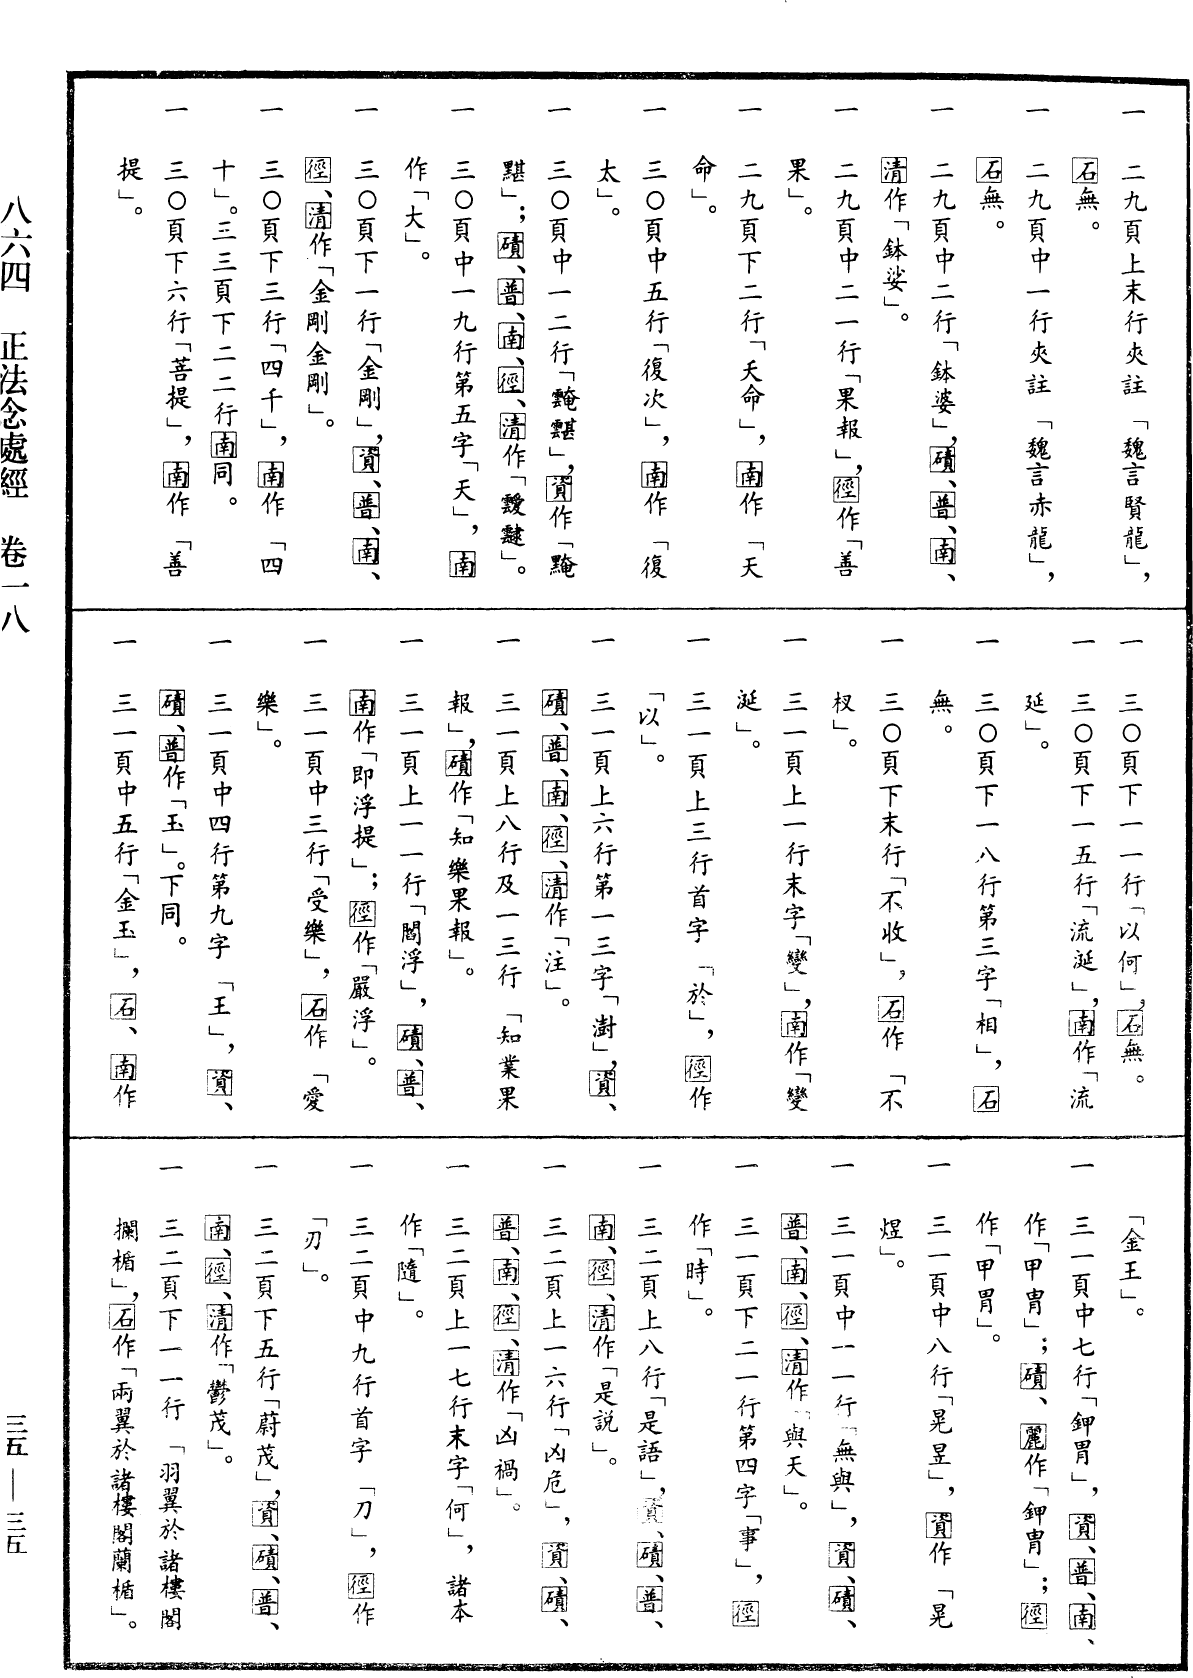 一 二九頁上末行夾註「魏言賢龍」，
石無。
一 二九頁中一行夾註「魏言赤龍」，
石無。
一 二九頁中二行「鉢婆」，磧、普、南、
清作「鉢娑」。
一 二九頁中二一行「果報」，徑作「善
果」。
一 二九頁下二行「夭命」，南作「天
命」。
一 三〇頁中五行「復次」，南作「復
太」。
一 三〇頁中一二行「」，資作「黤
黮」；磧、普、南、徑、清作「靉靆」。
一 三〇頁中一九行第五字「天」，南
作「大」。
一 三〇頁下一行「金剛」，資、普、南、
徑、清作「金剛金剛」。
一 三〇頁下三行「四千」，南作「四
十」。三三頁下二二行南同。
一 三〇頁下六行「菩提」，南作「善
提」。
一 三〇頁下一一行「以何」，石無。
一 三〇頁下一五行「流涎」，南作「流
延」。
一 三〇頁下一八行第三字「相」，石
無。
一 三〇頁下末行「不收」，石作「不
杈」。
一 三一頁上一行末字「變」，南作「變
涎」。
一 三一頁上三行首字「於」，徑作
「以」。
一 三一頁上六行第一三字「澍」，資、
磧、普、南、徑、清作「注」。
一 三一頁上八行及一三行「知業果
報」，磧作「知樂果報」。
一 三一頁上一一行「閻浮」，磧、普、
南作「即浮提」；徑作「嚴浮」。
一 三一頁中三行「受樂」，石作「愛
樂」。
一 三一頁中四行第九字「王」，資、
磧、普作「玉」。下同。
一 三一頁中五行「金玉」，石、南作
「金王」。
一 三一頁中七行「鉀胃」，資、普、南、
作「甲冑」；磧、麗作「鉀冑」；徑
作「甲胃」。
一 三一頁中八行「晃昱」，資作「晃
煜」。
一 三一頁中一一行「無與」，資、磧、
普、南、徑、清作「與天」。
一 三一頁下二一行第四字「事」，徑
作「時」。
一 三二頁上八行「是語」，資、磧、普、
南、徑、清作「是説」。
一 三二頁上一六行「凶危」，資、磧、
普、南、徑、清作「凶禍」。
一 三二頁上一七行末字「何」，諸本
作「隨」。
一 三二頁中九行首字「刀」，徑作
「刃」。
一 三二頁下五行「蔚茂」，資、磧、普、
南、徑、清作「鬱茂」。
一 三二頁下一一行「羽翼於諸樓閣
攔楯」，石作「兩翼於諸樓閣蘭楯」。
八六四 正法念處經 卷一八
三五—三五